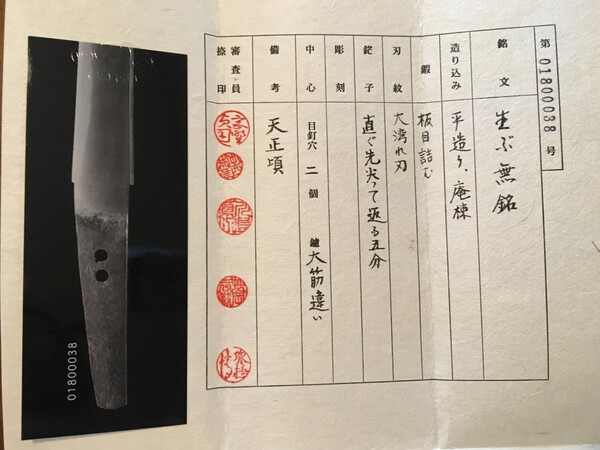 第 01800038 号
銘文 生ぶ無銘
造り込み 平造り、庵棟
鍛 板目詰む
刃紋 大湾れ刃
鋩子 直ぐ先尖って返る五分
彫刻
中心 目釘穴 二個 鑢 大筋違い
備考 天正頃
審査員 捺印
01800038